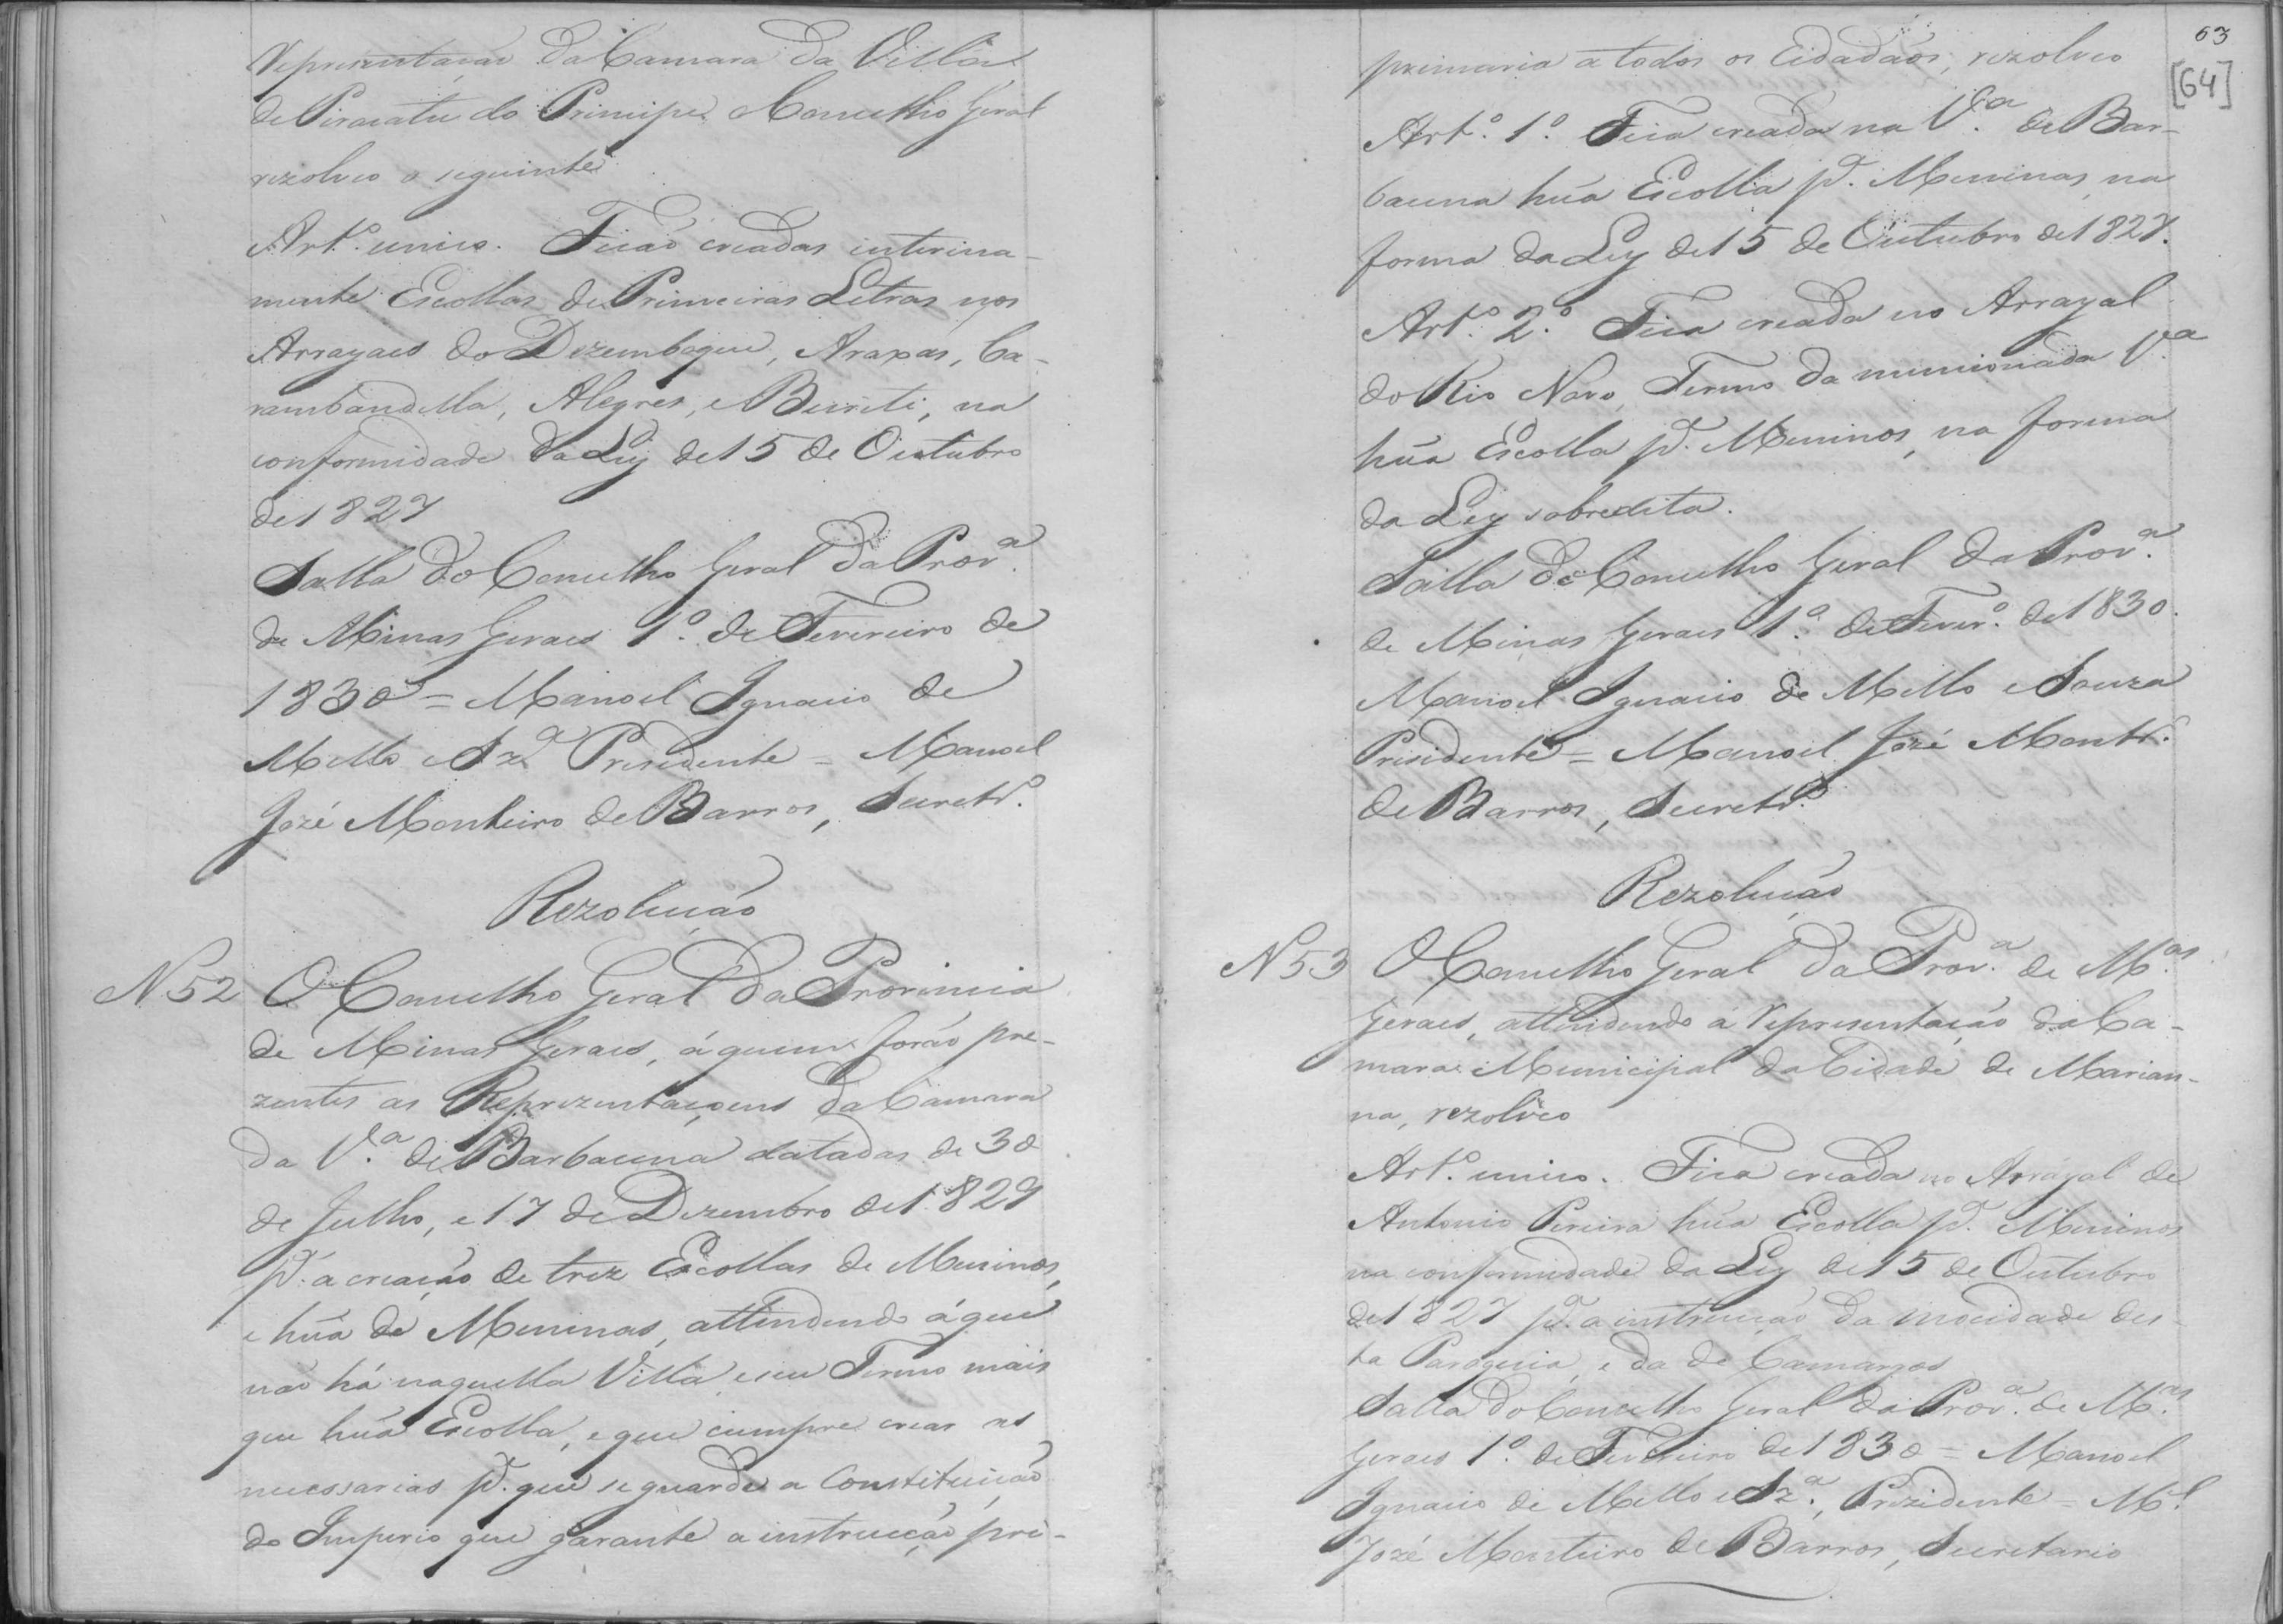 Reprezentação da Camara da Villa
de Piracatu do Principe o Concelho Geral
rezolveo o seguinte
Art.º unico. Ficão creadas interina-
mente Escollas de Primeiras Letras nos
Arrayaes do Dezemboque, Araxas, Ca-
rambandella, Alegres, e Buriti, na
conformidade da Ley de 15 de Outubro
de 1827
Salla do Concelho Geral da Prov.ª
de Minas Geraes 1.º de Fevereiro de
1830 = Manoel Ignacio de
Mello e Sz.ª Presidente = Manoel
José Monteiro de Barros, Secretr.º
Rezolução
N 52 O Concelho Geral da Provincia
de Minas Geraes, á quem forão pre-
zentes as Reprezentaçoens da Camara
da V.ª de Barbacena datadas de 30
de Julho, e 17 de Dezembro de 1829
p.ª a creação de trez Escollas de Meninos,
e hũa de Meninas, attendendo á que
não há naquella Villa e seu Termo mais
que hũa Escolla, e que cumpre crear as
necessarias p.ª que se guarde a Constituição
do Imperio que garante a instrucção pri-
63
[64]
primaria a todos os Cidadãos, rezolveo
Art.º 1.º Fica creada na V.ª de Bar-
bacena hũa Escolla p.ª Meninas na
forma da Ley de 15 de Outubro de 1827.
Art.º 2.º Fica creada no Arrayal
do Rio Novo, Termo da mencionada V.ª
hũa Escolla p.ª Meninos, na forma
da Ley sobredita.
Salla do Concelho Geral da Prov.ª
de Minas Geraes 1.º de Fever.º de 1830.
Manoel Ignacio de Mello e Souza
Prisidente = Manoel José Montr.º
de Barros, Secretr.º
Rezolução
N 53 O Concelho Geral da Prov.ª de M.as
Geraes, attendendo á representação da Ca-
mara Municipal da Cidade de Marian-
na, rezolveo
Art.º unico. Fica creada no Arrayal de
Antonio Pereira hũa Escolla p.ª Meninos
na conformidade da Ley de 15 de Outubro
de 1827 p.ª a instrucção da mocidade des-
ta Paroquia, e da de Camargos
Salla do Concelho Geral da Prov.ª de M.as
Geraes 1.º de Fevereiro de 1830 = Manoel
Ignacio de Mello e Sz.ª, Prezidente = M.el
José Monteiro de Barros, Secretario